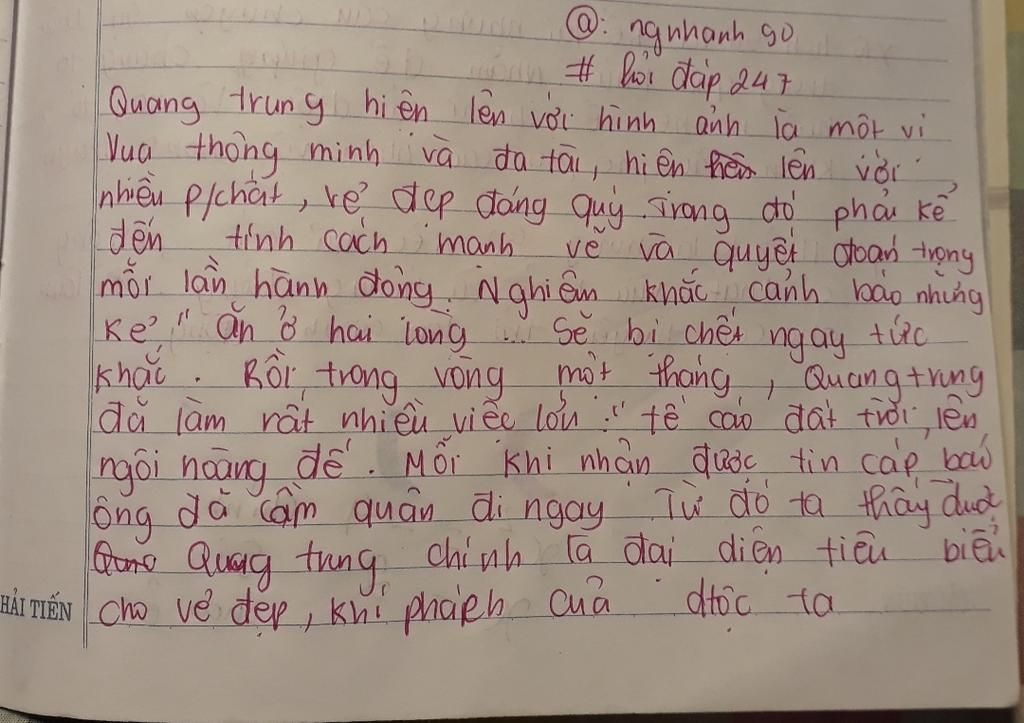 @: ngnhanh 90
# hỏi đáp 247
Quang trung hiện lên với hình ảnh là một vì
Vua thông minh và đa tài, hiện lên với
nhiều p/chất, vẻ đẹp đáng quý. Trong đó phải kể
đến tính cách mạnh vẽ và quyết đoán trong
mỗi lần hành động. Nghiêm khắc cảnh báo những
kẻ " ăn ở hai lòng ... Sẽ bị chết ngay tức
khắc. Rồi trong vòng một tháng, Quang trung
đã làm rất nhiều việc lớn :" tế cáo đất trời, lên
ngôi hoàng đế. Mỗi khi nhận được tin cấp báo
ông đã cầm quân đi ngay Từ đó ta thấy được
Quang trung chính là đại diện tiêu biểu
cho vẻ đẹp, khí phách của dtộc ta
HẢI TIẾN